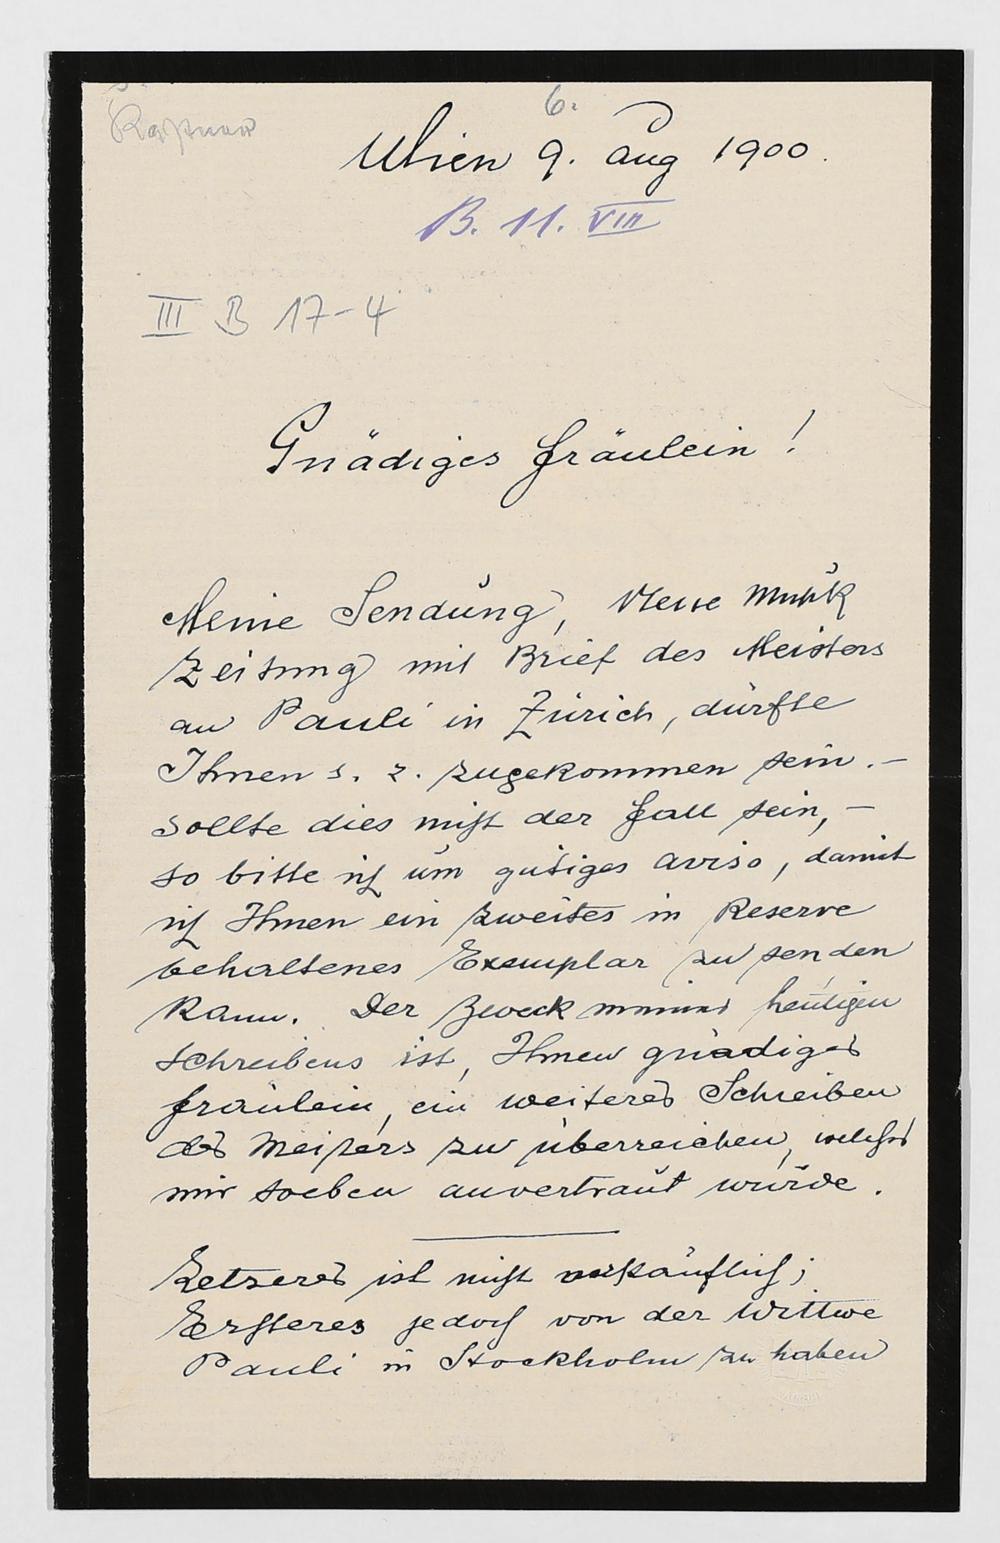 6.
Wien 9. Aug 1900.
B. 11. VIII
III B 17-4
Gnädiges Fräulein!
Meine Sendung, Neue Musik
Zeitung mit Brief des Meisters
an Pauli in Zürich, dürfte
Ihnen s. z. zugekommen sein. –
Sollte dies nicht der Fall sein, –
so bitte ich um gütiges Aviso, damit
ich Ihnen ein zweites in Reserve
behaltenes Exemplar zu senden
kann. Der Zweck meines heutigen
Schreibens ist, Ihnen gnädiges
Fräulein, ein weiteres Schreiben
des Meisters zu überreichen, welches
mir soeben anvertraut wurde.
Letzeres ist nicht verkäuflich;
Ersteres jedoch von der Wittwe
Pauli in Stockholm zu haben